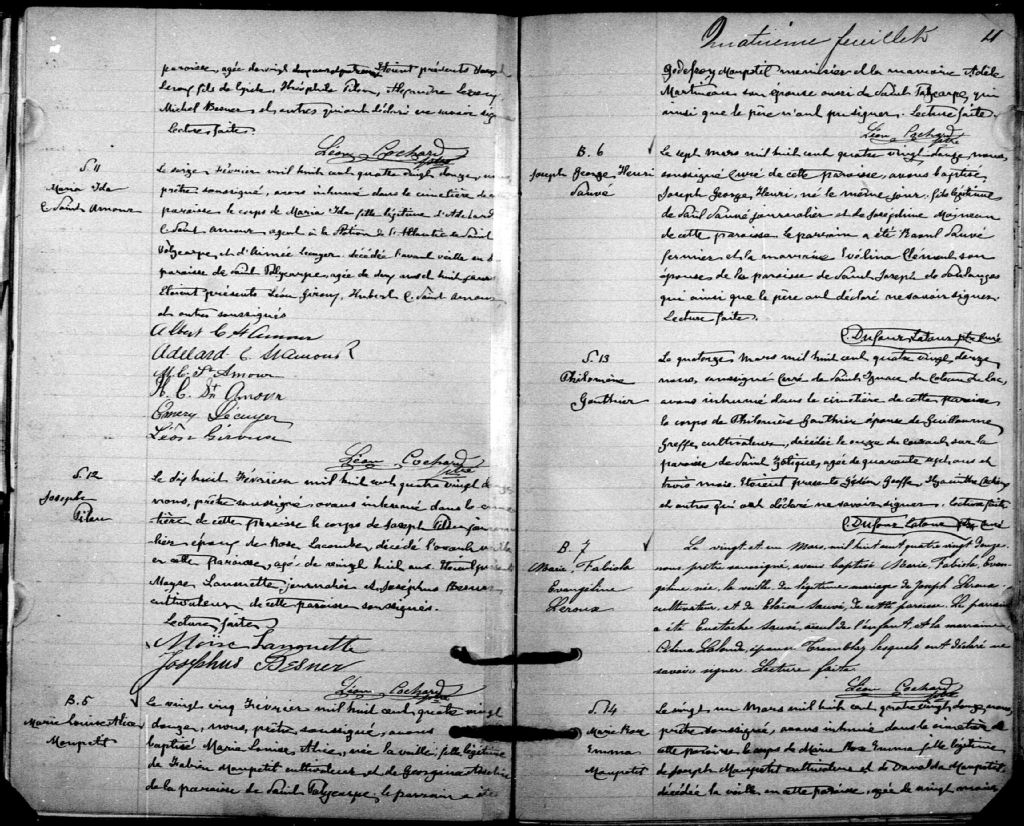 paroisse, agée de vingt quatre ans. Etaient présents Joseph
Leroux fils de Théophile Pilon, Alexandre Leroux
Michel Besner et autres qui ont déclaré ne savoir sig
Lecture faite.
Léon Cochard ptre
S. 11
Maria Ida
C. Saint Amour
Le seize février mil huit cent quatre vingt douze, nous
prêtre soussigné, avons inhumé dans le cimetière de
paroisse le corps de Maria Ida fille légitime d'Adelard
C. Saint amour agent à la Station de l'Atlantic de Saint
Polycarpe, et d'Aimée Lecuyer. décédée l'avant veille en
paroisse de Saint Polycarpe, agée de ans et huit jours
Etaient présents Léon Giroux, Hubert C. Saint Amour
et autres soussignés
Albert C St Amour
Adelard C. St Amour
M. C. St Amour
H. C. St Amour
Emery Lécuyer
Léon Giroux
Léon Cochard ptre
S. 12
Joseph
Pilon
Le dix huit Février mil huit cent quatre vingt d
nous, prêtre soussigné, avons inhumé dans le cime
tière de cette paroisse le corps de Joseph Pilon journa
lier époux de Rose Lacombe, décédé l'avant veille
en cette paroisse, agé de vingt huit ans. Etaient présents
Moyse Lanouette journalier et Joséphus Besner
cultivateur de cette paroisse soussignés.
Lecture faite
Moïse Lanouette
Josephus Besner
Léon Cochard ptre
B. 5
Marie Louise Alice
Maupetit
Le vingt cinq Février mil huit cent quatre vingt
douze, nous, prêtre soussigné, avons
baptisé Marie Louise, Alice, née la veille, fille légitime
de Fabien Maupetit cultivateur et de Georgina Asselin
de la paroisse de Saint Polycarpe; le parrain a été
Quatrième feuillet 4
Godefroy Maupetit menuisier et la marraine Adèle
Martineau son épouse aussi de Saint Polycarpe, qui
ainsi que le père n'ont pu signer. Lecture faite.
Léon Cochard ptre
B. 6
Joseph George Henri
Sauvé
Le sept mars mil huit cent quatre vingt douze, nous,
soussigné Curé de cette paroisse, avons baptisé
Joseph George Henri, né le même jour, fils légitime
de Paul Sauvé journalier et de Joséphine Moineau
de cette paroisse le parrain a été Raoul Sauvé
fermier et la marraine Evélina Clément son
épouse de la paroisse de Saint Joseph de Soulanges
qui ainsi que le père ont déclaré ne savoir signer.
Lecture faite.
C. Dufour Latour ptre Curé
S. 13
Philomène
Gauthier
Le quatorze mars mil huit cent quatre vingt douze
nous, soussigné Curé de Saint Ignace du Coteau du lac,
avons inhumé dans le cimetière de cette paroisse
le corps de Philomène Gauthier épouse de Guillaume
Greffe cultivateur, décédée le onze du courant sur la
paroisse de Saint Zotique, agée de quarante sept ans et
trois mois. Etaient présents Gédéon Greffe, Hyacinthe
et autres qui ont déclaré ne savoir signer. Lecture faite
C. Dufour Latour ptre Curé
B. 7
Marie Fabiola
Evangeline
Leroux
Le vingt et un Mars, mil huit cent quatre vingt douze,
nous prêtre soussigné, avons baptisé Marie Fabiola, Evan
geline née la veille du légitime mariage de Joseph Leroux
cultivateur, et de Eloïse Sauvé, de cette paroisse. Le parrain
a été Eustache Sauvé, aïeul de l'enfant, et la marraine
Célina Lalonde, épouse Tremblay lesquels ont déclaré ne
savoir signer. Lecture faite.
Léon Cochard ptre
S. 14
Marie Rose
Emma
Maupetit
Le vingt un Mars mil huit cent quatre vingt douze, nous,
prêtre soussigné, avons inhumé dans le cimetière de
cette paroisse, le corps de Marie Rose Emma fille légitime
de Joseph Maupetit cultivateur et de Donalda Maupetit,
décédée la veille en cette paroisse, agée de vingt